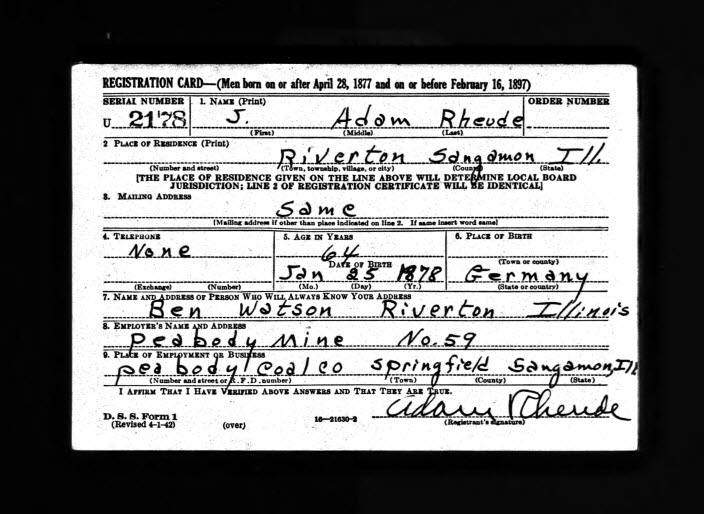 REGISTRATION CARD—(Men born on or after April 28, 1877 and on or before February 16, 1897)
SERIAL NUMBER 1. NAME (Print) ORDER NUMBER
U 2178 J. Adam Rheude
(First) (Middle) (Last)
2 PLACE OF RESIDENCE (Print)
Riverton Sangamon Ill.
(Number and street) (Town, township, village, or city) (County) (State)
[THE PLACE OF RESIDENCE GIVEN ON THE LINE ABOVE WILL DETERMINE LOCAL BOARD
JURISDICTION; LINE 2 OF REGISTRATION CERTIFICATE WILL BE IDENTICAL]
3. MAILING ADDRESS
Same
[Mailing address if other than place indicated on line 2. If same insert word same]
4. TELEPHONE 5. AGE IN YEARS 6. PLACE OF BIRTH
None 64
DATE OF BIRTH (Town or county)
Jan 25 1878 Germany
(Exchange) (Number) (Mo.) (Day) (Yr.) (State or country)
7. NAME AND ADDRESS OF PERSON WHO WILL ALWAYS KNOW YOUR ADDRESS
Ben Watson Riverton Illinois
8. EMPLOYER'S NAME AND ADDRESS
Peabody Mine No. 59
9. PLACE OF EMPLOYMENT OR BUSINESS
pea body Coal co springfield Sangamon, Ill
(Number and street or R. F. D. number) (Town) (County) (State)
I AFFIRM THAT I HAVE VERIFIED ABOVE ANSWERS AND THAT THEY ARE TRUE.
Adam Rheude
D. S. S. Form 1
(Revised 4-1-42) (over) 16—21630-2 (Registrant's signature)